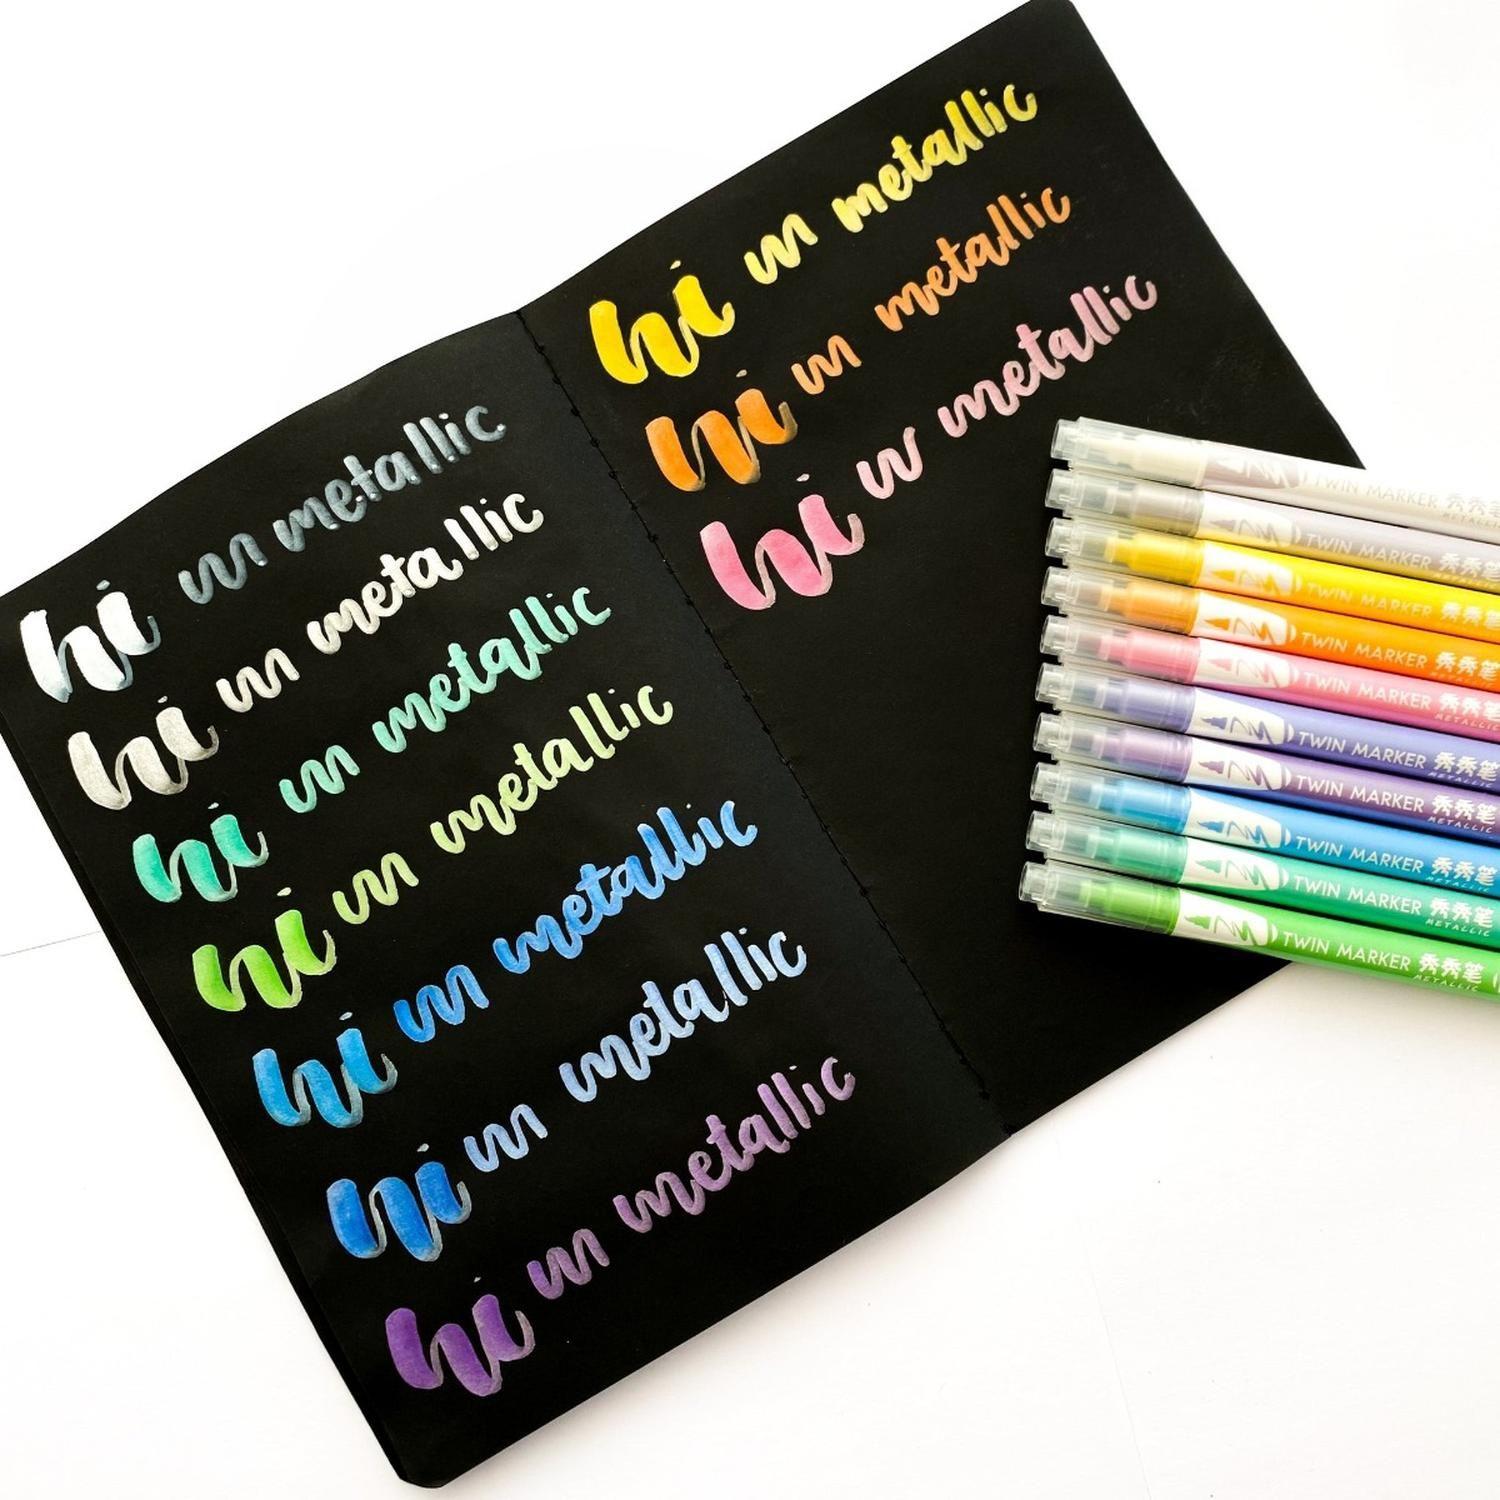 hi in metallic
hi in metallic
hi in metallic
hi in metallic
hi in metallic
hi in metallic
hi in metallic
hi in metallic
hi in metallic
hi in metallic
TWIN MARKER 秀秀笔
METALLIC
TWIN MARKER 秀秀笔
METALLIC
TWIN MARKER 秀秀笔
METALLIC
TWIN MARKER 秀秀笔
METALLIC
TWIN MARKER 秀秀笔
METALLIC
TWIN MARKER 秀秀笔
METALLIC
TWIN MARKER 秀秀笔
METALLIC
TWIN MARKER 秀秀笔
METALLIC
TWIN MARKER 秀秀笔
METALLIC
TWIN MARKER 秀秀笔
METALLIC